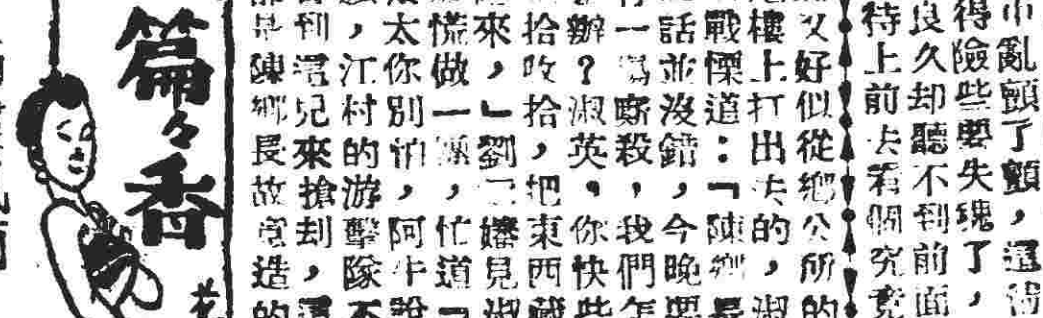 亂顫了顫，還
得險些要失魂了，
良久却聽不到前面
待上前去看個究竟
又好似從鄉公所的
樓上打出去的，淑
戰慄道：「陳鄉長
話並沒錯，今晚要
一場廝殺，我們怎
辦？淑英，你快些
拾收拾，把東西藏
來，」劉二嬸見淑
慌做一團，忙道「
太你別怕，阿牛說
，江村的游擊隊不
到這兒來搶刦，還
是陳鄉長故意造的
篇々香
花